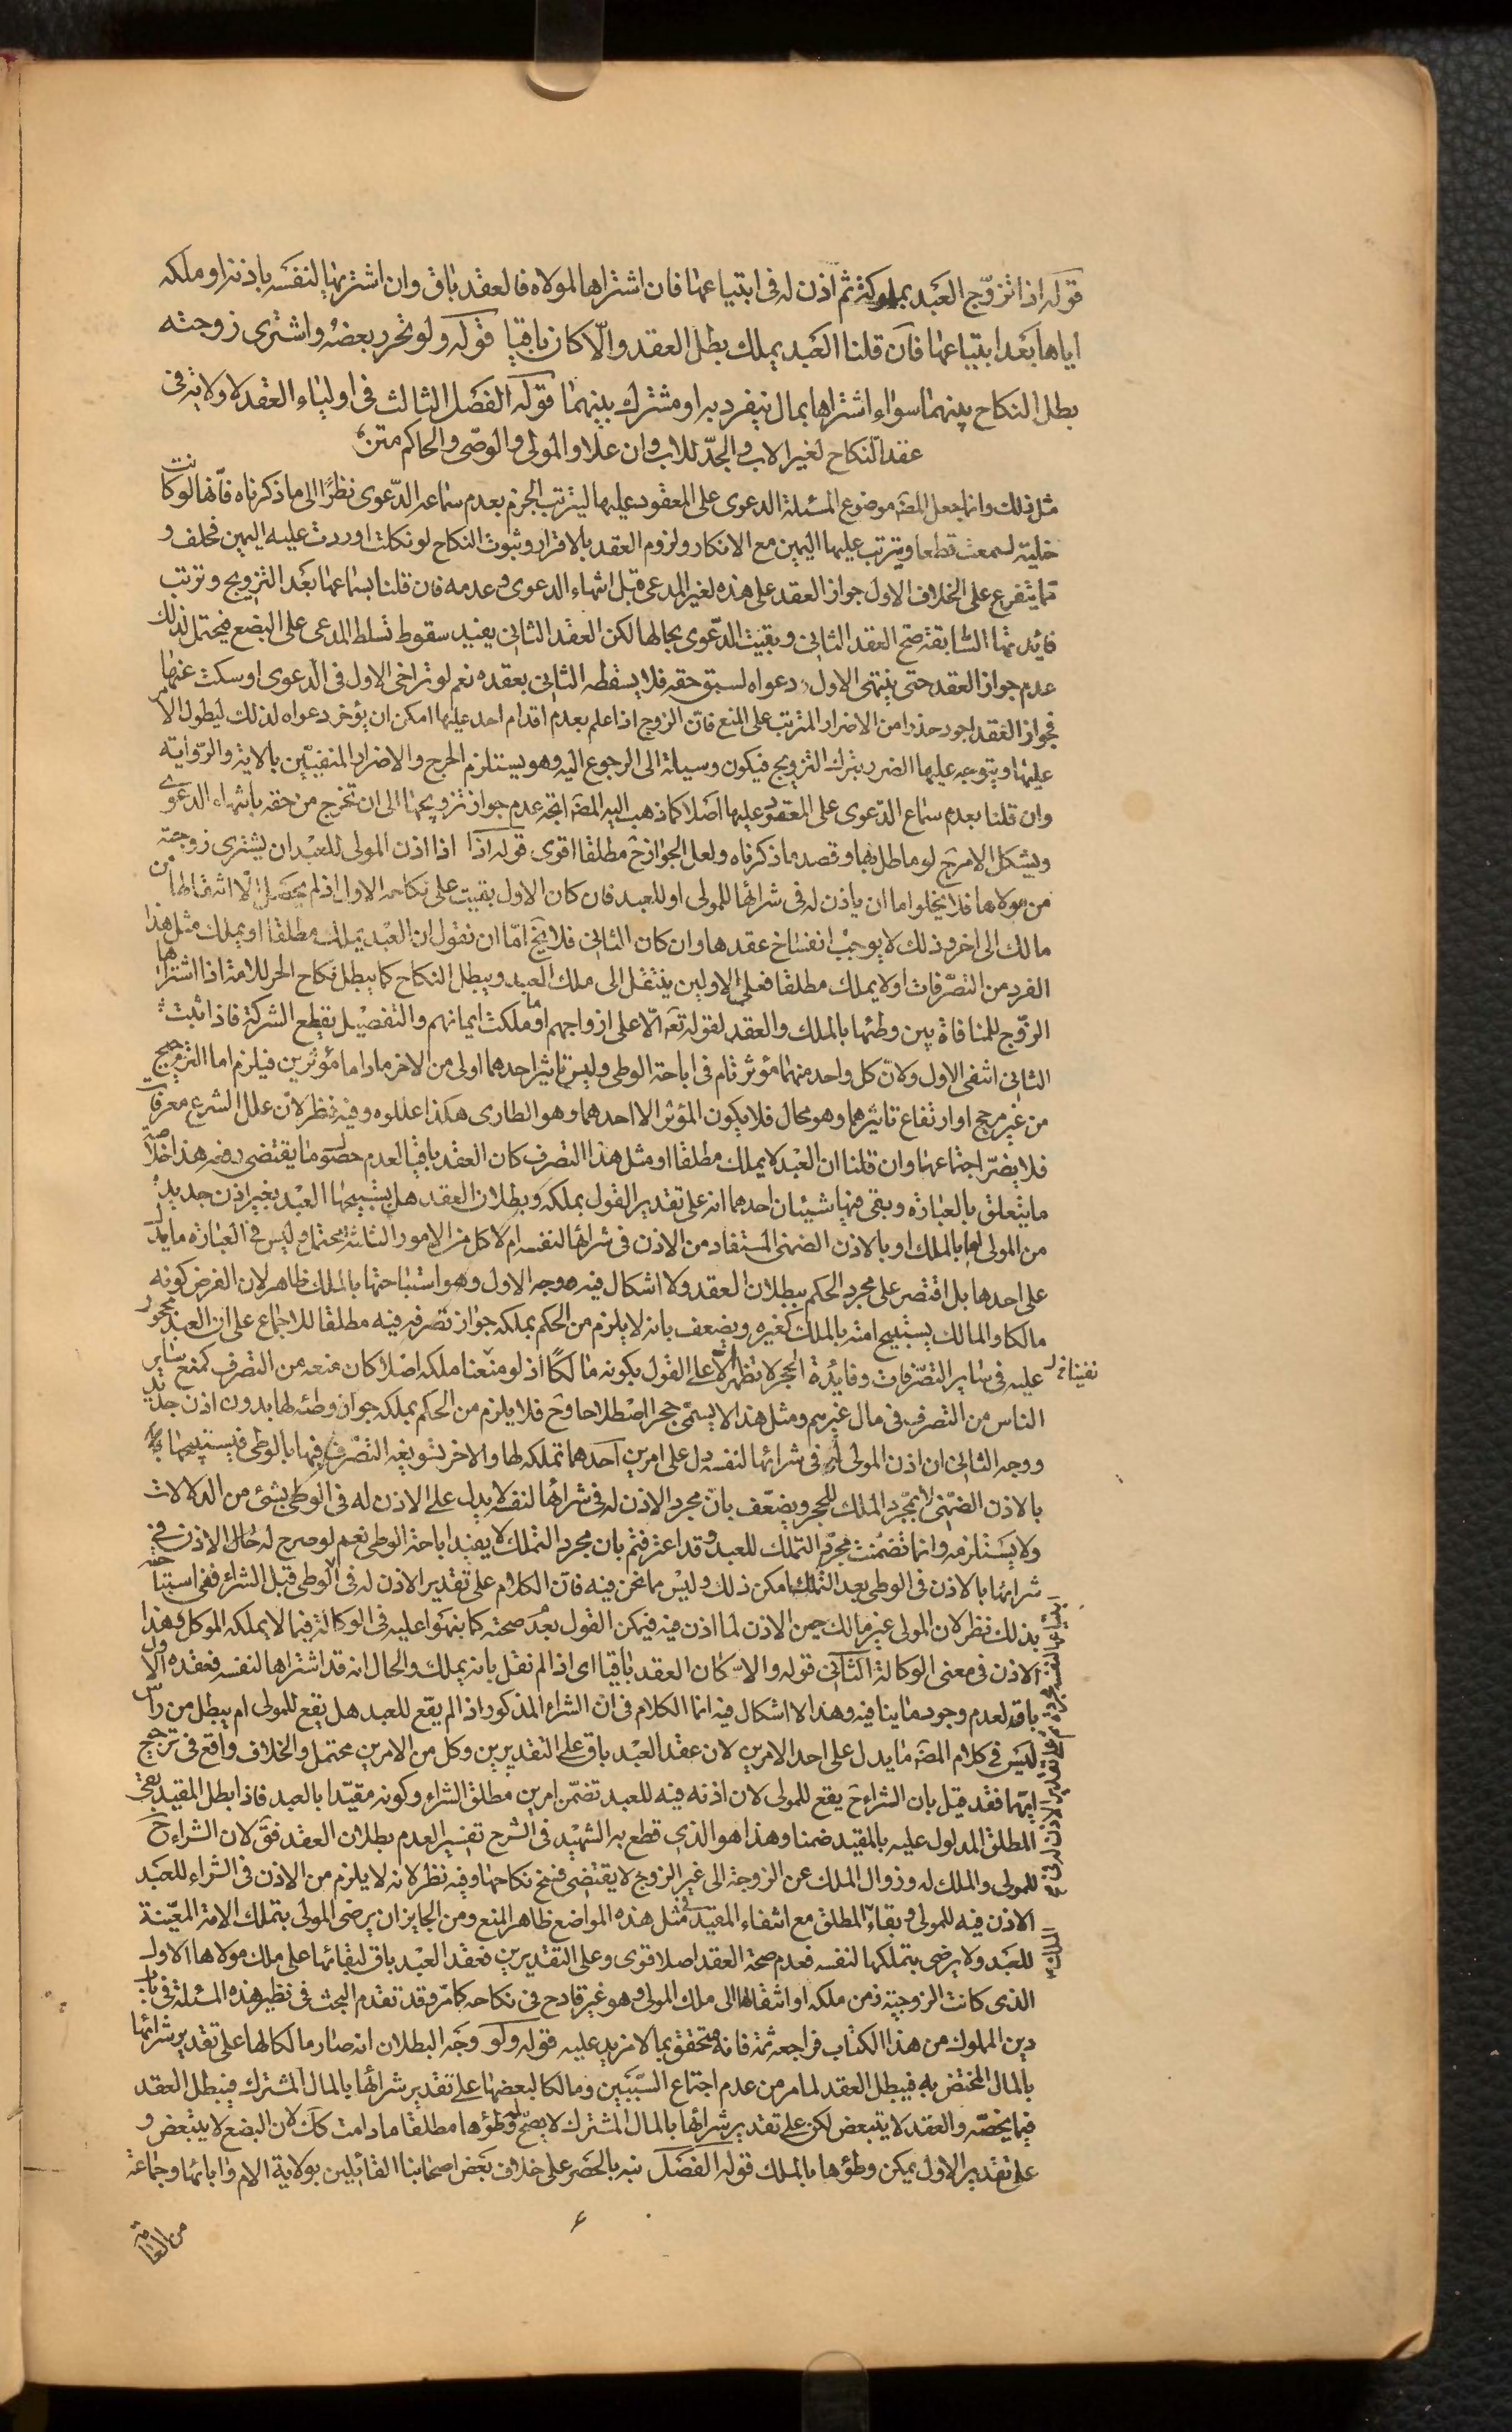 قوله اذا تزوّج العبد بمملوكة ثم اذن له فى ابتياعها فان اشتراها لمولاه فالعقد باق وان اشتريها لنفسه باذنه او ملكه
اياها بعد ابتياعها فان قلنا العبد يملك بطل العقد والّا كان باقيا قوله ولو تحرر بعضه واشترى زوجته
بطل النكاح بينهما سواء اشتراها بمال ينفرد به او مشترك بينهما قوله الفصل الثالث فى اولياء العقد لا ولاية فى
عقد النكاح لغير الاب والجدّ للاب وان علا والمولى والوصى والحاكم متن
مثل ذلك وانما جعل المصّ موضوع المسئلة الدعوى على المعقود عليها ليترتب الجزم بعدم سماع الدّعوى نظرًا الى ما ذكرناه فانّها لو كانت
خلية لسمعت قطعا ويترتب عليها اليمين مع الانكار ولزوم العقد بالاقرار وثبوت النكاح لو نكلت او ردت عليه اليمين فحلف و
مما يتفرع على الخلاف الاول جواز العقد على هذه لغير المدعى قبل انتهاء الدعوى وعدمه فان قلنا بسماعها بعد التزويج وترتب
فايدتها السابقة صح العقد الثانى وبقيت الدّعوى بحالها لكن العقد الثانى يفيد سقوط تسلط المدعى على البضع فيحتمل لذلك
عدم جواز العقد حتى ينتهى الاول دعواه لسبق حقه فلا يسقطه الثانى بعقده نعم لو تراخى الاول فى الدعوى او سكت عنها
فجواز العقد اجود حذرا من الاضرار المترتب على المنع فان الزوج اذا علم بعدم اقدام احد عليها امكن ان يؤخر دعواه لذلك ليطول الامر
عليها ويتوجه عليها الضرر بترك التزويج فيكون وسيلة الى الرجوع اليه وهو يستلزم الحرج والاضرار المنفيّين بالاية والرّواية
وان قلنا بعدم سماع الدّعوى على المعقود عليها اصلا كما ذهب اليه المصّ اتجه عدم جواز تزويجها الى ان تخرج من حقه بانتهاء الدعوى
ويشكل الامر ح لو ماطل بها وقصد ما ذكرناه ولعل الجواز ح مطلقا اقوى قوله اذا اذا اذن المولى للعبد ان يشترى زوجته
من مولاها فلا يخلو اما ان ياذن له فى شرائها للمولى او للعبد فان كان الاول بقيت على نكاحه الاول اذ لم يحصل الّا انتقالها من
مالك الى اخر وذلك لا يوجب انفساخ عقدها وان كان الثانى فلا يخ امّا ان نقول ان العبد يملك مطلقا او يملك مثل هذا
الفرد من التصرّفات او لا يملك مطلقا فعلى الاولين ينتقل الى ملك العبد ويبطل النكاح كما يبطل نكاح الحر للامة اذا اشتراها
الزوج للمنافاة بين وطئها بالملك والعقد لقوله تعه الّا على ازواجهم او ما ملكت ايمانهم والتفصيل يقطع الشركة فاذا ثبت
الثانى انتفى الاول ولانّ كل واحد منهما مؤثر تام فى اباحة الوطى وليس تاثير احدهما اولى من الاخر ما داما مؤثرين فيلزم اما الترجيح
من غير مرجح او ارتفاع تاثيرهما وهو محال فلا يكون المؤثر الا احدهما وهو الطارى هكذا عللوه وفيه نظر لانّ علل الشرع معرفات
فلا يضرّ اجتماعها وان قلنا ان العبد لا يملك مطلقا او مثل هذا التصرف كان العقد باقيا لعدم حصول ما يقتضى رفعه هذا خلاصة
ما يتعلق بالعبارة وبقى فيها شيئان احدهما انه على تقدير القول بملكه وبطلان العقد هل يستبيحها العبد بغير اذن جديد
من المولى اما بالملك او بالاذن الضمنى المستفاد من الاذن فى شرائها لنفسه ام لا كل من الامور الثلثة محتمل وليس فى العبارة ما يدل
على احدها بل اقتصر على مجرد الحكم ببطلان العقد ولا اشكال فيه ووجه الاول وهو استباحتها بالملك ظاهر لان الفرض كونه
مالكا والمالك يستبيح امته بالملك كغيره ويضعف بانه لا يلزم من الحكم بملكه جواز تصرفه فيه مطلقا للاجماع على ان العبد محجور
عليه فى ساير التصرّفات وفايدة الحجر لا تظهر الّا على القول بكونه مالكًا اذ لو منعنا ملكه اصلا كان منعه من التصرف كمنع ساير
الناس من التصرف فى مال غيرهم ومثل هذا لا يسمّى حجرا اصطلاحا وح فلا يلزم من الحكم بملكه جواز وطئه لها بدون اذن جديد
ووجه الثانى ان اذن المولى له فى شرائها لنفسه دل على امرين احدهما تملكه لها والاخر تسويغه التصرف فيها بالوطى فيستبيحها
بالاذن الضمنى لا بمجرد الملك للحجر ويضعّف بانّ مجرد الاذن له فى شرائها لنفسه لا يدل على الاذن له فى الوطى بشئ من الدلالات
ولا يستلزمه وانما تضمنت مجرّد التملك للعبد وقد اعترفتم بان مجرد التملك لا يفيد اباحة الوطى نعم لو صرح له حال الاذن فى
شرائها بالاذن فى الوطى بعد التملك امكن ذلك وليس مما نحن فيه فانّ الكلام على تقدير الاذن له فى الوطى قبل الشراء ففى استباحته
بذلك نظر لان المولى غير مالك حين الاذن لما اذن فيه فيمكن القول بعدم صحته كما نبهوا عليه فى الوكالة فيما لا يملكه الموكل وهذا
الاذن فى معنى الوكالة الثانى قوله والا كان العقد باقيا اى اذا لم نقل بانه يملك والحال انه قد اشتراها لنفسه فعقده الاول
باق لعدم وجود ما ينافيه وهذا لا اشكال فيه انما الكلام فى ان الشراء المذكور اذا لم يقع للعبد هل يقع للمولى ام يبطل من راس
ليس فى كلام المصّ ما يدل على احد الامرين لان عقد العبد باق على التقديرين وكل من الامرين محتمل والخلاف واقع فى ترجيح
ايّهما فقد قيل بان الشراء ح يقع للمولى لان اذنه فيه للعبد تضمّن امرين مطلق الشراء وكونه مقيّدا بالعبد فاذا بطل المقيد بقى
المطلق المدلول عليه بالمقيد ضمنا وهذا هو الذى قطع به الشهيد فى الشرح تفسير العدم بطلان العقد فقَ لان الشراء ح
للمولى والملك له وزوال الملك عن الزوجة الى غير الزوج لا يقتضى فسخ نكاحها وفيه نظر لانه لا يلزم من الاذن فى الشراء للعبد
الاذن فيه للمولى وبقاء المطلق مع انتفاء المقيد فى مثل هذه المواضع ظاهر المنع ومن الجايز ان يرضى المولى بتملك الامة المعيّنة
للعبد ولا يرضى بتملكها لنفسه فعدم صحة العقد اصلا قوى وعلى التقديرين فعقد العبد باق لبقائها على ملك مولاها الاول
الذى كانت الزوجية زمن ملكه او انتقالها الى ملك المولى وهو غير قادح فى نكاحه كما مرّ وقد تقدم البحث فى نظير هذه المسئلة فى باب
دين المملوك من هذا الكتاب فراجعه ثمة فانه متحقق بما لا مزيد عليه قوله ولو وجه البطلان انه صار مالكا لها على تقدير شرائها
بالمال المختص به فيبطل العقد لما مر من عدم اجتماع السّببين ومالكا لبعضها على تقدير شرائها بالمال المشترك فيبطل العقد
فيما يخصّه والعقد لا يتبعض لكن على تقدير شرائها بالمال المشترك لا يصح له وطؤها مطلقا ما دامت كك لان البضع لا يتبعض و
على تقدير الاول يمكن وطؤها بالملك قوله الفصل نبه بالحصر على خلاف بعض اصحابنا القائلين بولاية الام وابائها وجماعة
من العامة